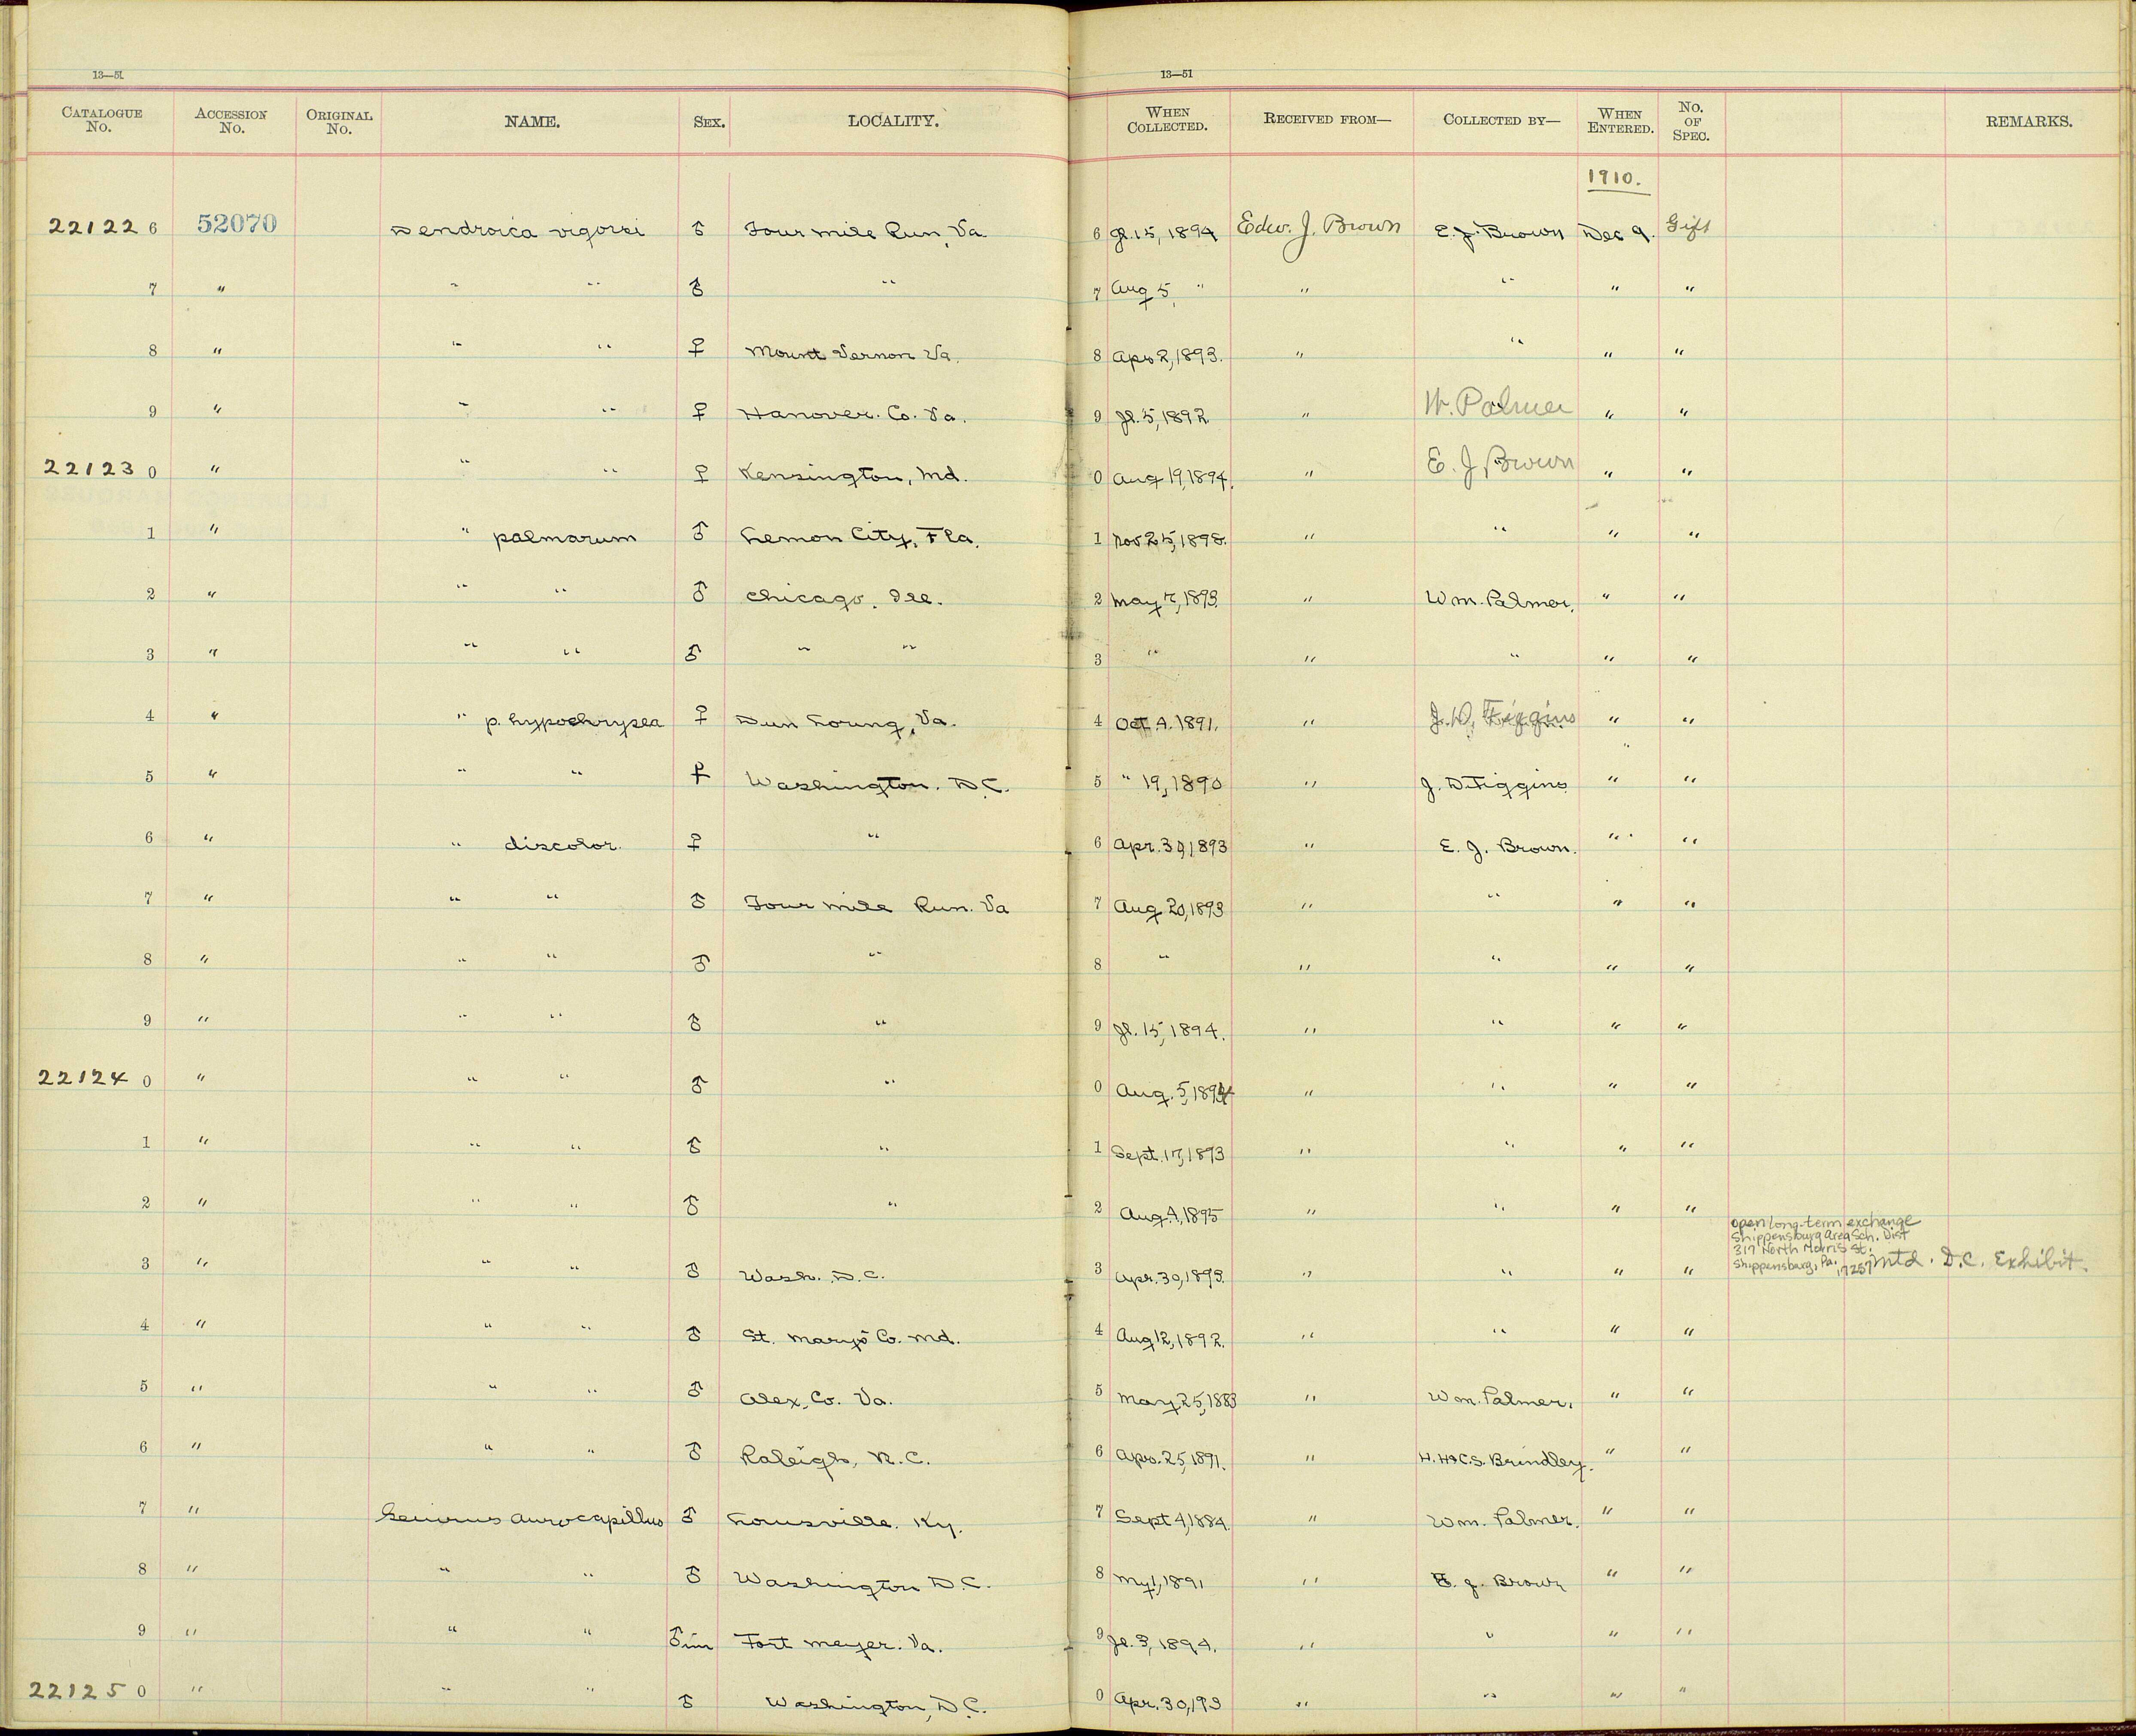 13—51 13—51
CATALOGUE No. ACCESSION No. ORIGINAL No. NAME. SEX. LOCALITY. WHEN COLLECTED. RECEIVED FROM— COLLECTED BY— WHEN ENTERED. No. OF SPEC. REMARKS.
1910.
22122 6 52070 Dendroica vigorsi ♂ Four mile Run, Va 6 Jl. 15, 1894 Edw. J. Brown E. J. Brown Dec 9. Gift
7 " " " ♂ " 7 Aug 5, " " " " "
8 " " " ♀ Mount Vernon Va. 8 Apr 2, 1893. " " " "
9 " " " ♀ Hanover. Co. Va. 9 Jl. 5, 1892 " W. Palmer " "
22123 0 " " " ♀ Kensington, Md. 0 Aug 19, 1894. " E. J Brown " "
1 " " palmarum ♂ Lemon City, Fla. 1 Nov 25, 1898. " " " "
2 " " " ♂ Chicago. Ill. 2 May 7, 1893. " Wm. Palmer. " "
3 " " " ♂ " " 3 " " " " "
4 " " p. hypochrysea ♀ Dun Loung, Va. 4 Oct. 4. 1891. " J. D. Figgins " "
5 " " " ♀ Washington. D.C. 5 " 19, 1890 " J. D. Figgins " "
6 " " discolor. ♀ " 6 Apr. 30, 1893 " E. J. Brown. " "
7 " " " ♂ Four mile Run. Va 7 Aug 20, 1893 " " " "
8 " " " ♂ " 8 " " " " "
9 " " " ♂ " 9 Jl. 15, 1894. " " " "
22124 0 " " " ♂ " 0 Aug. 5, 1894 " " " "
1 " " " ♂ " 1 Sept. 17, 1893 " " " "
2 " " " ♂ " 2 Aug. 4, 1895 " " " "
open long-term exchange
Shippensburg Area Sch. Dist
317 North Morris St.
Shippensburg, Pa. 17257
3 " " " ♂ Wash. D.C. 3 Apr. 30, 1893. " " " " Mtd. D.C. Exhibit.
4 " " " ♂ St. Mary's Co. Md. 4 Aug 12, 1892. " " " "
5 " " " ♂ Alex. Co. Va. 5 May 25, 1883 " Wm. Palmer. " "
6 " " " ♂ Raleigh, N.C. 6 Apr. 25, 1891. " H. H & C. S. Brindley. " "
7 " Seiurus aurocapillus ♂ Louisville. Ky. 7 Sept 4, 1884. " Wm. Palmer. " "
8 " " " ♂ Washington D.C. 8 My 1, 1891 " E. J. Brown " "
9 " " " ♂ im Fort Meyer. Va. 9 Jl. 3, 1894. " " " "
22125 0 " " " ♂ Washington, D.C. 0 Apr. 30, 193 " " " "